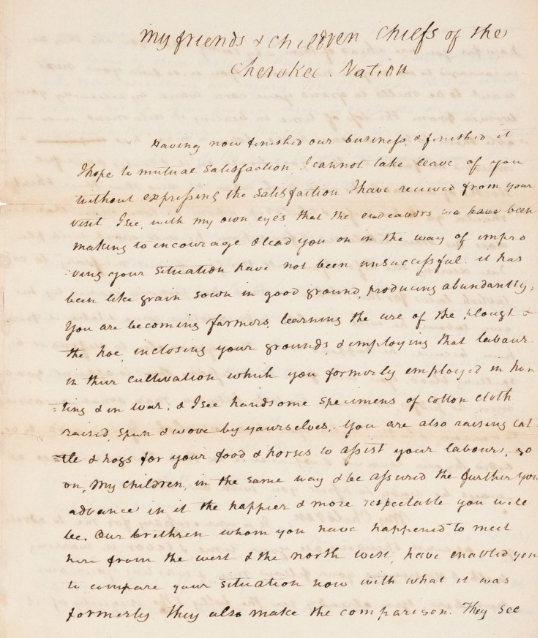 My friends & children Chiefs of the
Cherokee Nation
Having now finished our business & finished it
I hope to mutual satisfaction I cannot take leave of you
without expressing the satisfaction I have received from your
visit I see with my own eyes that the endeavors we have been
making to encourage & lead you on in the way of impro
ving your situation have not been unsuccessful. it has
been like grain sown in good ground, producing abundantly.
You are becoming farmers, learning the use of the plough &
the hoe, inclosing your grounds & employing that labour
in their cultivation which you formerly employed in hun
=ting & in war. & I see handsome specimens of cotton cloth
raised, spun & wove by yourselves. You are also raising cat
=tle & hogs for your food & horses to assist your labours, go
on, My children, in the same way & be assured the further you
advance in it the happier & more respectable you will
be. Our brethren whom you have happened to meet
here from the west & the north west, have enabled you
to compare your situation now with what it was
formerly they also make the comparison. They see